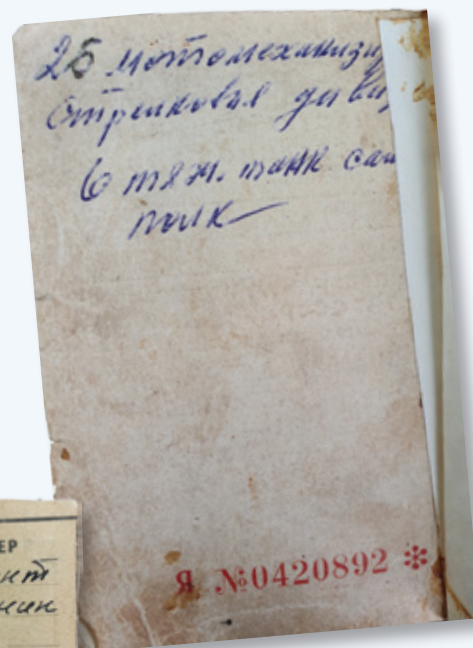 25 мотомеханизи
Стрелковая диви
6 тяж. танк сам
полк
Я №0420892 *
ЕР
нт
нин